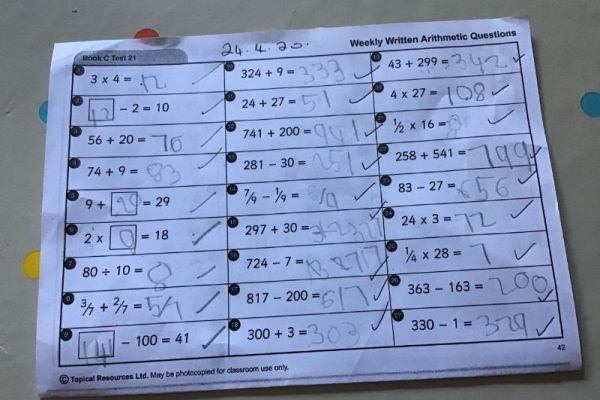 24.4.20.
Weekly Written Arithmetic Questions
Book C Test 21
1 3 x 4 = 12
2 12 – 2 = 10
3 56 + 20 = 76
4 74 + 9 = 83
5 9 + 20 = 29
6 2 x 9 = 18
7 80 ÷ 10 = 8
8 3/7 + 2/7 = 5/7
9 141 – 100 = 41
10 324 + 9 = 333
11 24 + 27 = 51
12 741 + 200 = 941
13 281 – 30 = 251
14 7/9 – 1/9 = 6/9
15 297 + 30 = 327
16 724 – 7 = 717
17 817 – 200 = 617
18 300 + 3 = 303
19 43 + 299 = 342
20 4 x 27 = 108
21 1/2 x 16 = 8
22 258 + 541 = 799
23 83 – 27 = 56
24 24 x 3 = 72
25 1/4 x 28 = 7
26 363 – 163 = 200
27 330 – 1 = 329
42
© Topical Resources Ltd. May be photocopied for classroom use only.